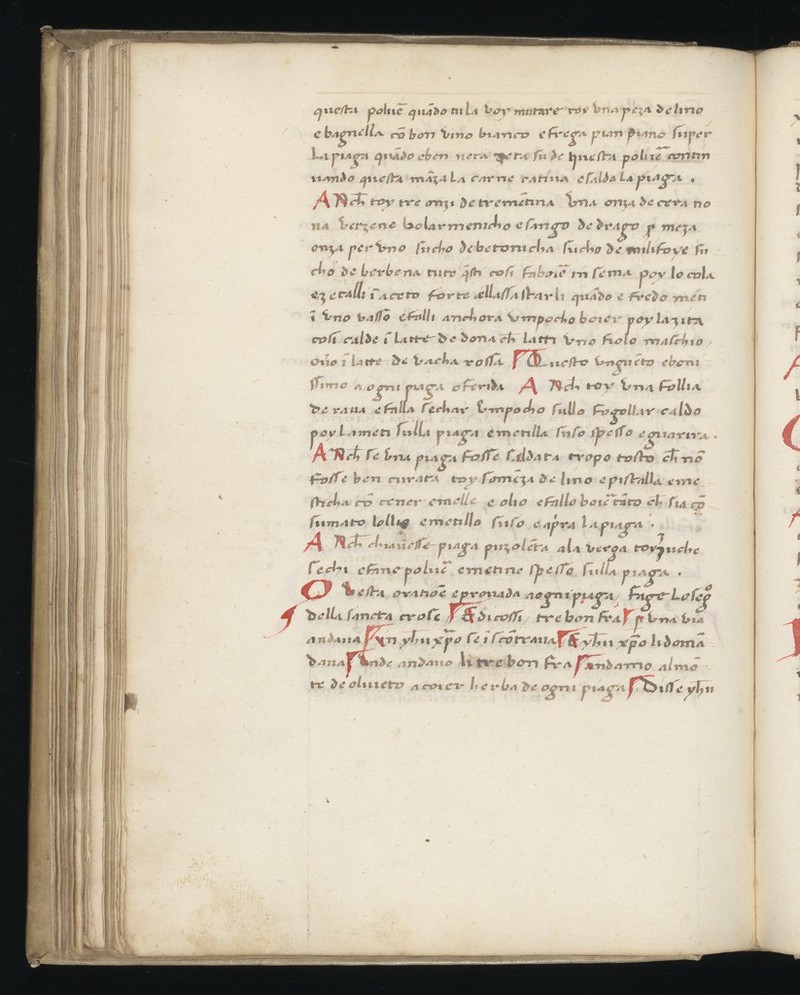 questa polue᷈ quādo tu la voy mutare toy vna peza de lino
e bagnella cō bon vino bianco e frega pian piano super
la piaga quādo eben neta su de questa polue᷈ contin
uando questa māza la carne catiua e salda la piaga .
ANch̄ toy tre onzi de tremētina vna onza de cera no
ua verzene bolarmenicho e sango de drago ꝑ meza
onza per vno sucho de betonicha sucho de milifoye su
cho de berbena tute q̄sti cosi faboie᷈ in sema poy lo cola
ez etalli ī aceto forte ellassa starli quādo e fredo meti
ī vno vasso efalli anchora vmpocho boier poy la zita
cosi calde ī latte de dona ch̄ latti vno fiolo maschio
ouo ī latte de vacha rossa Questo vnguēto e boni
ssimo a ogni piaga o ferida ANch toy vna follia
de raua efalla sechar vmpocho sullo fogollar caldo
poy la meti sulla piaga emetilla suso spesso e guarira .
ANch̄ se vna piaga fosse saldata tropo tosto ch̄ nō
fosse ben curata toy somēza de lino epistalla eme
sticha cō cener emelle e olio efallo boie᷈ tāto ch̄ sia cō
sumato lollio emetillo suso e apra la piaga .
ANch̄ chiauesse piaga puzolēta ala verga toy zuche
sechi efane polue᷈ emetine spesso sulla piaga .
Questa oratiōe e prouada a ogni piaga / fage lo segō
della sancta crose / E dicossi / tre bon fra ꝑ vna via
andaua yh̄u xp̄o se ī scōtraua E yh̄u xp̄o li domā
daua vnde andauo li tre bon fra andamo al mō
te de oliueto a coier herba de ogni piaga Disse yh̄u